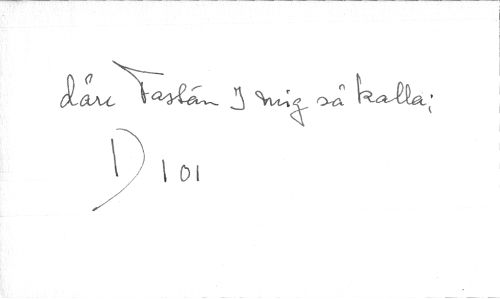 dåre Fastän I mig så kalla;
D 101